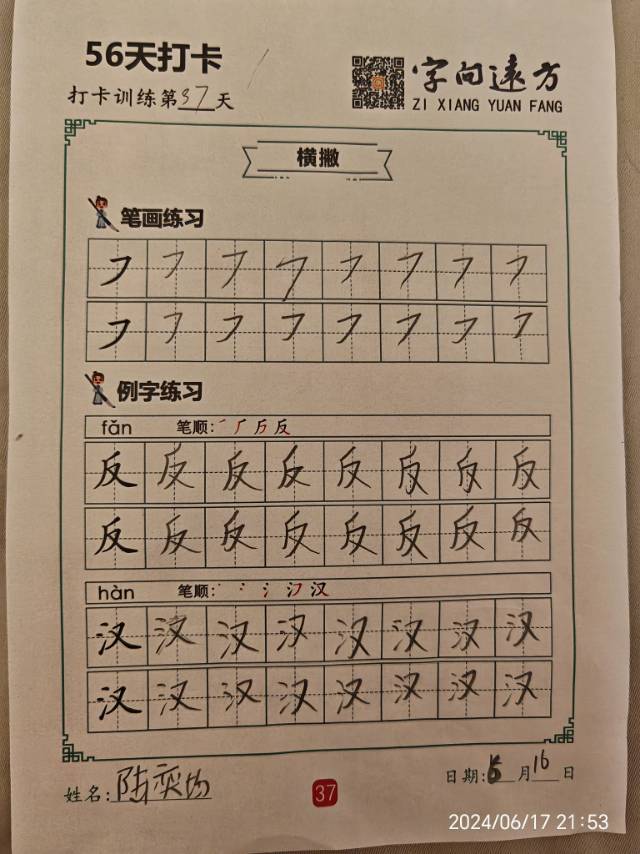 56天打卡
打卡训练第37天
字向远方
ZI XIANG YUAN FANG
横撇
笔画练习
㇇ ㇇ ㇇ ㇇ ㇇ ㇇ ㇇ ㇇
㇇ ㇇ ㇇ ㇇ ㇇ ㇇ ㇇ ㇇
例字练习
fǎn 笔顺: 反
反 反 反 反 反 反 反 反
反 反 反 反 反 反 反 反
hàn 笔顺: 汉
汉 汉 汉 汉 汉 汉 汉 汉
汉 汉 汉 汉 汉 汉 汉 汉
姓名: 陆奕
37
日期: 6月16日
2024/06/17 21:53